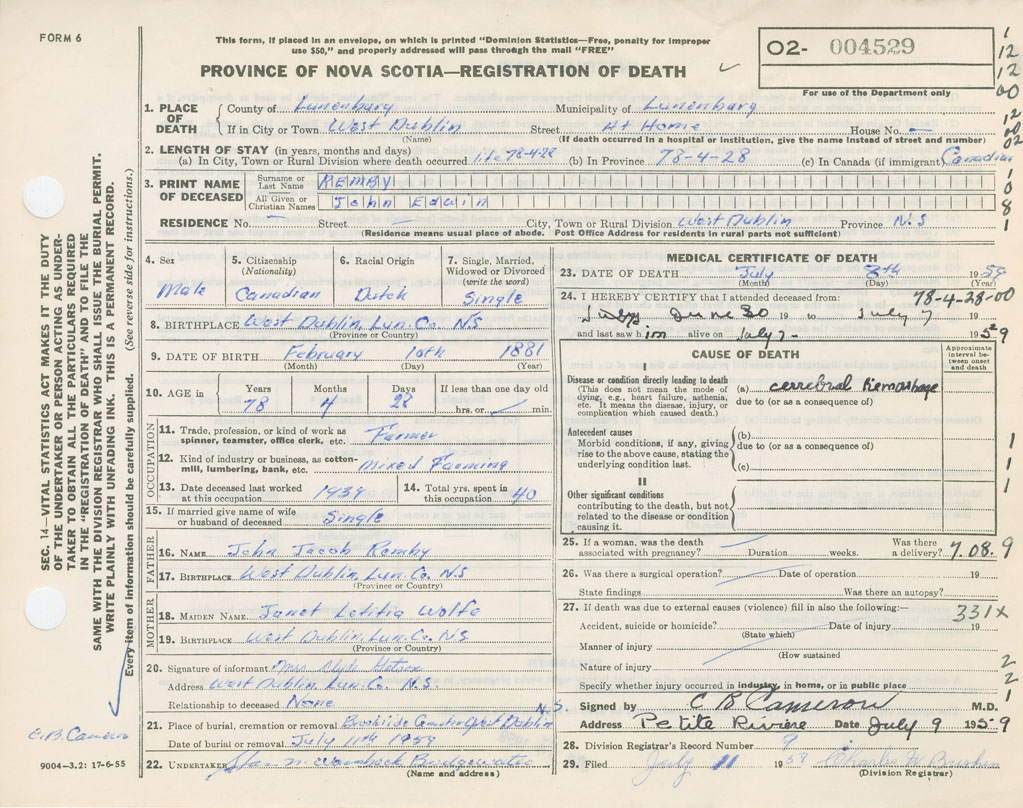 FORM 6
This form, if placed in an envelope, on which is printed "Dominion Statistics—Free, penalty for improper
use $50," and properly addressed will pass through the mail "FREE"
PROVINCE OF NOVA SCOTIA—REGISTRATION OF DEATH
02- 004529
For use of the Department only
1. PLACE OF DEATH
County of Lunenburg Municipality of Lunenburg
If in City or Town West Dublin Street At Home House No. —
(Name) (If death occurred in a hospital or institution, give the name instead of street and number)
2. LENGTH OF STAY (in years, months and days)
(a) In City, Town or Rural Division where death occurred life 78-4-28 (b) In Province 78-4-28 (c) In Canada (if immigrant) Canadian
3. PRINT NAME OF DECEASED
Surname or Last Name REMBY
All Given or Christian Names John Edwin
RESIDENCE No. — Street — City, Town or Rural Division West Dublin Province N.S
(Residence means usual place of abode. Post Office Address for residents in rural parts not sufficient)
4. Sex
Male
5. Citizenship
(Nationality)
Canadian
6. Racial Origin
Dutch
7. Single, Married,
Widowed or Divorced
(write the word)
Single
8. BIRTHPLACE West Dublin, Lun. Co. N.S
(Province or Country)
9. DATE OF BIRTH February 10th 1881
(Month) (Day) (Year)
10. AGE in
Years 78
Months 4
Days 28
If less than one day old
hrs. or min.
OCCUPATION
11. Trade, profession, or kind of work as
spinner, teamster, office clerk, etc. Farmer
12. Kind of industry or business, as cotton-
mill, lumbering, bank, etc. Mixed Farming
13. Date deceased last worked
at this occupation 1939
14. Total yrs. spent in
this occupation 40
15. If married give name of wife
or husband of deceased Single
FATHER
16. NAME John Jacob Remby
17. BIRTHPLACE West Dublin, Lun. Co. N.S
(Province or Country)
MOTHER
18. MAIDEN NAME Janet Letitia Wolfe
19. BIRTHPLACE West Dublin, Lun. Co. N.S
(Province or Country)
20. Signature of informant
Address West Dublin, Lun. Co. N.S.
Relationship to deceased None
21. Place of burial, cremation or removal Brookside West Dublin N.S.
Date of burial or removal July 11th 1959
22. UNDERTAKER Bridgewater
(Name and address)
MEDICAL CERTIFICATE OF DEATH
23. DATE OF DEATH July 8th 1959
(Month) (Day) (Year)
78-4-28-00
24. I HEREBY CERTIFY that I attended deceased from:
June 30 19 to July 7 19
and last saw him alive on July 7- 1959
CAUSE OF DEATH
Approximate
interval be-
tween onset
and death
I
Disease or condition directly leading to death
(This does not mean the mode of
dying, e.g., heart failure, asthenia,
etc. It means the disease, injury, or
complication which caused death.)
(a) cerrebral Hemorrhage
due to (or as a consequence of)
Antecedent causes
Morbid conditions, if any, giving
rise to the above cause, stating the
underlying condition last.
(b)
due to (or as a consequence of)
(c)
II
Other significant conditions
contributing to the death, but not
related to the disease or condition
causing it.
25. If a woman, was the death
associated with pregnancy? Duration weeks.
Was there
a delivery? 7.08.9
26. Was there a surgical operation? Date of operation 19
State findings Was there an autopsy?
27. If death was due to external causes (violence) fill in also the following:— 331X
Accident, suicide or homicide? Date of injury 19
(State which)
Manner of injury
(How sustained
Nature of injury
Specify whether injury occurred in industry, in home, or in public place
Signed by C B Cameron M.D.
Address Petite Riviere Date July 9 1959
28. Division Registrar's Record Number 9
29. Filed July 11 1959 Charles W
(Division Registrar)
1
12
12
00
12
00
02
1
0
8
1
1
1
1
2
2
1
SEC. 14—VITAL STATISTICS ACT MAKES IT THE DUTY
OF THE UNDERTAKER OR PERSON ACTING AS UNDER-
TAKER TO OBTAIN ALL THE PARTICULARS REQUIRED
IN THE "REGISTRATION OF DEATH" AND TO FILE THE
SAME WITH THE DIVISION REGISTRAR WHO SHALL ISSUE THE BURIAL PERMIT.
WRITE PLAINLY WITH UNFADING INK. THIS IS A PERMANENT RECORD.
Every item of information should be carefully supplied. (See reverse side for instructions.)
9004—3.2: 17-6-55